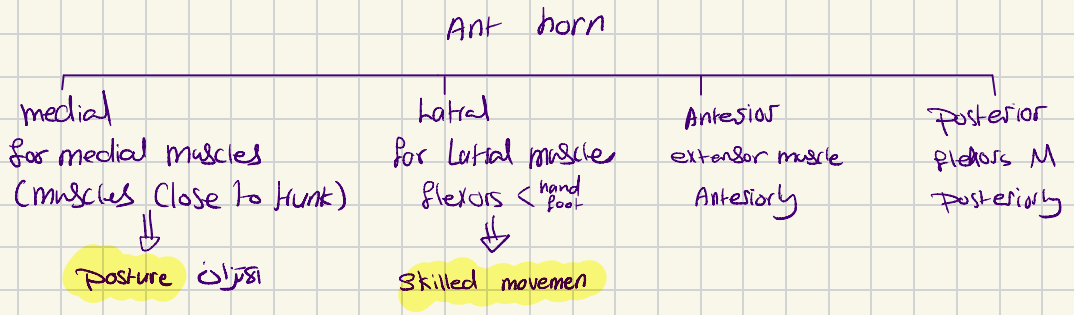 Ant horn
medial
for medial muscles
(muscles close to trunk)
posture اتزان
Latral
for Latral muscle
flexors < hand foot
skilled movemen
Antesior
extensor muscle
Antesiorly
posterior
flexors M
posteriorly